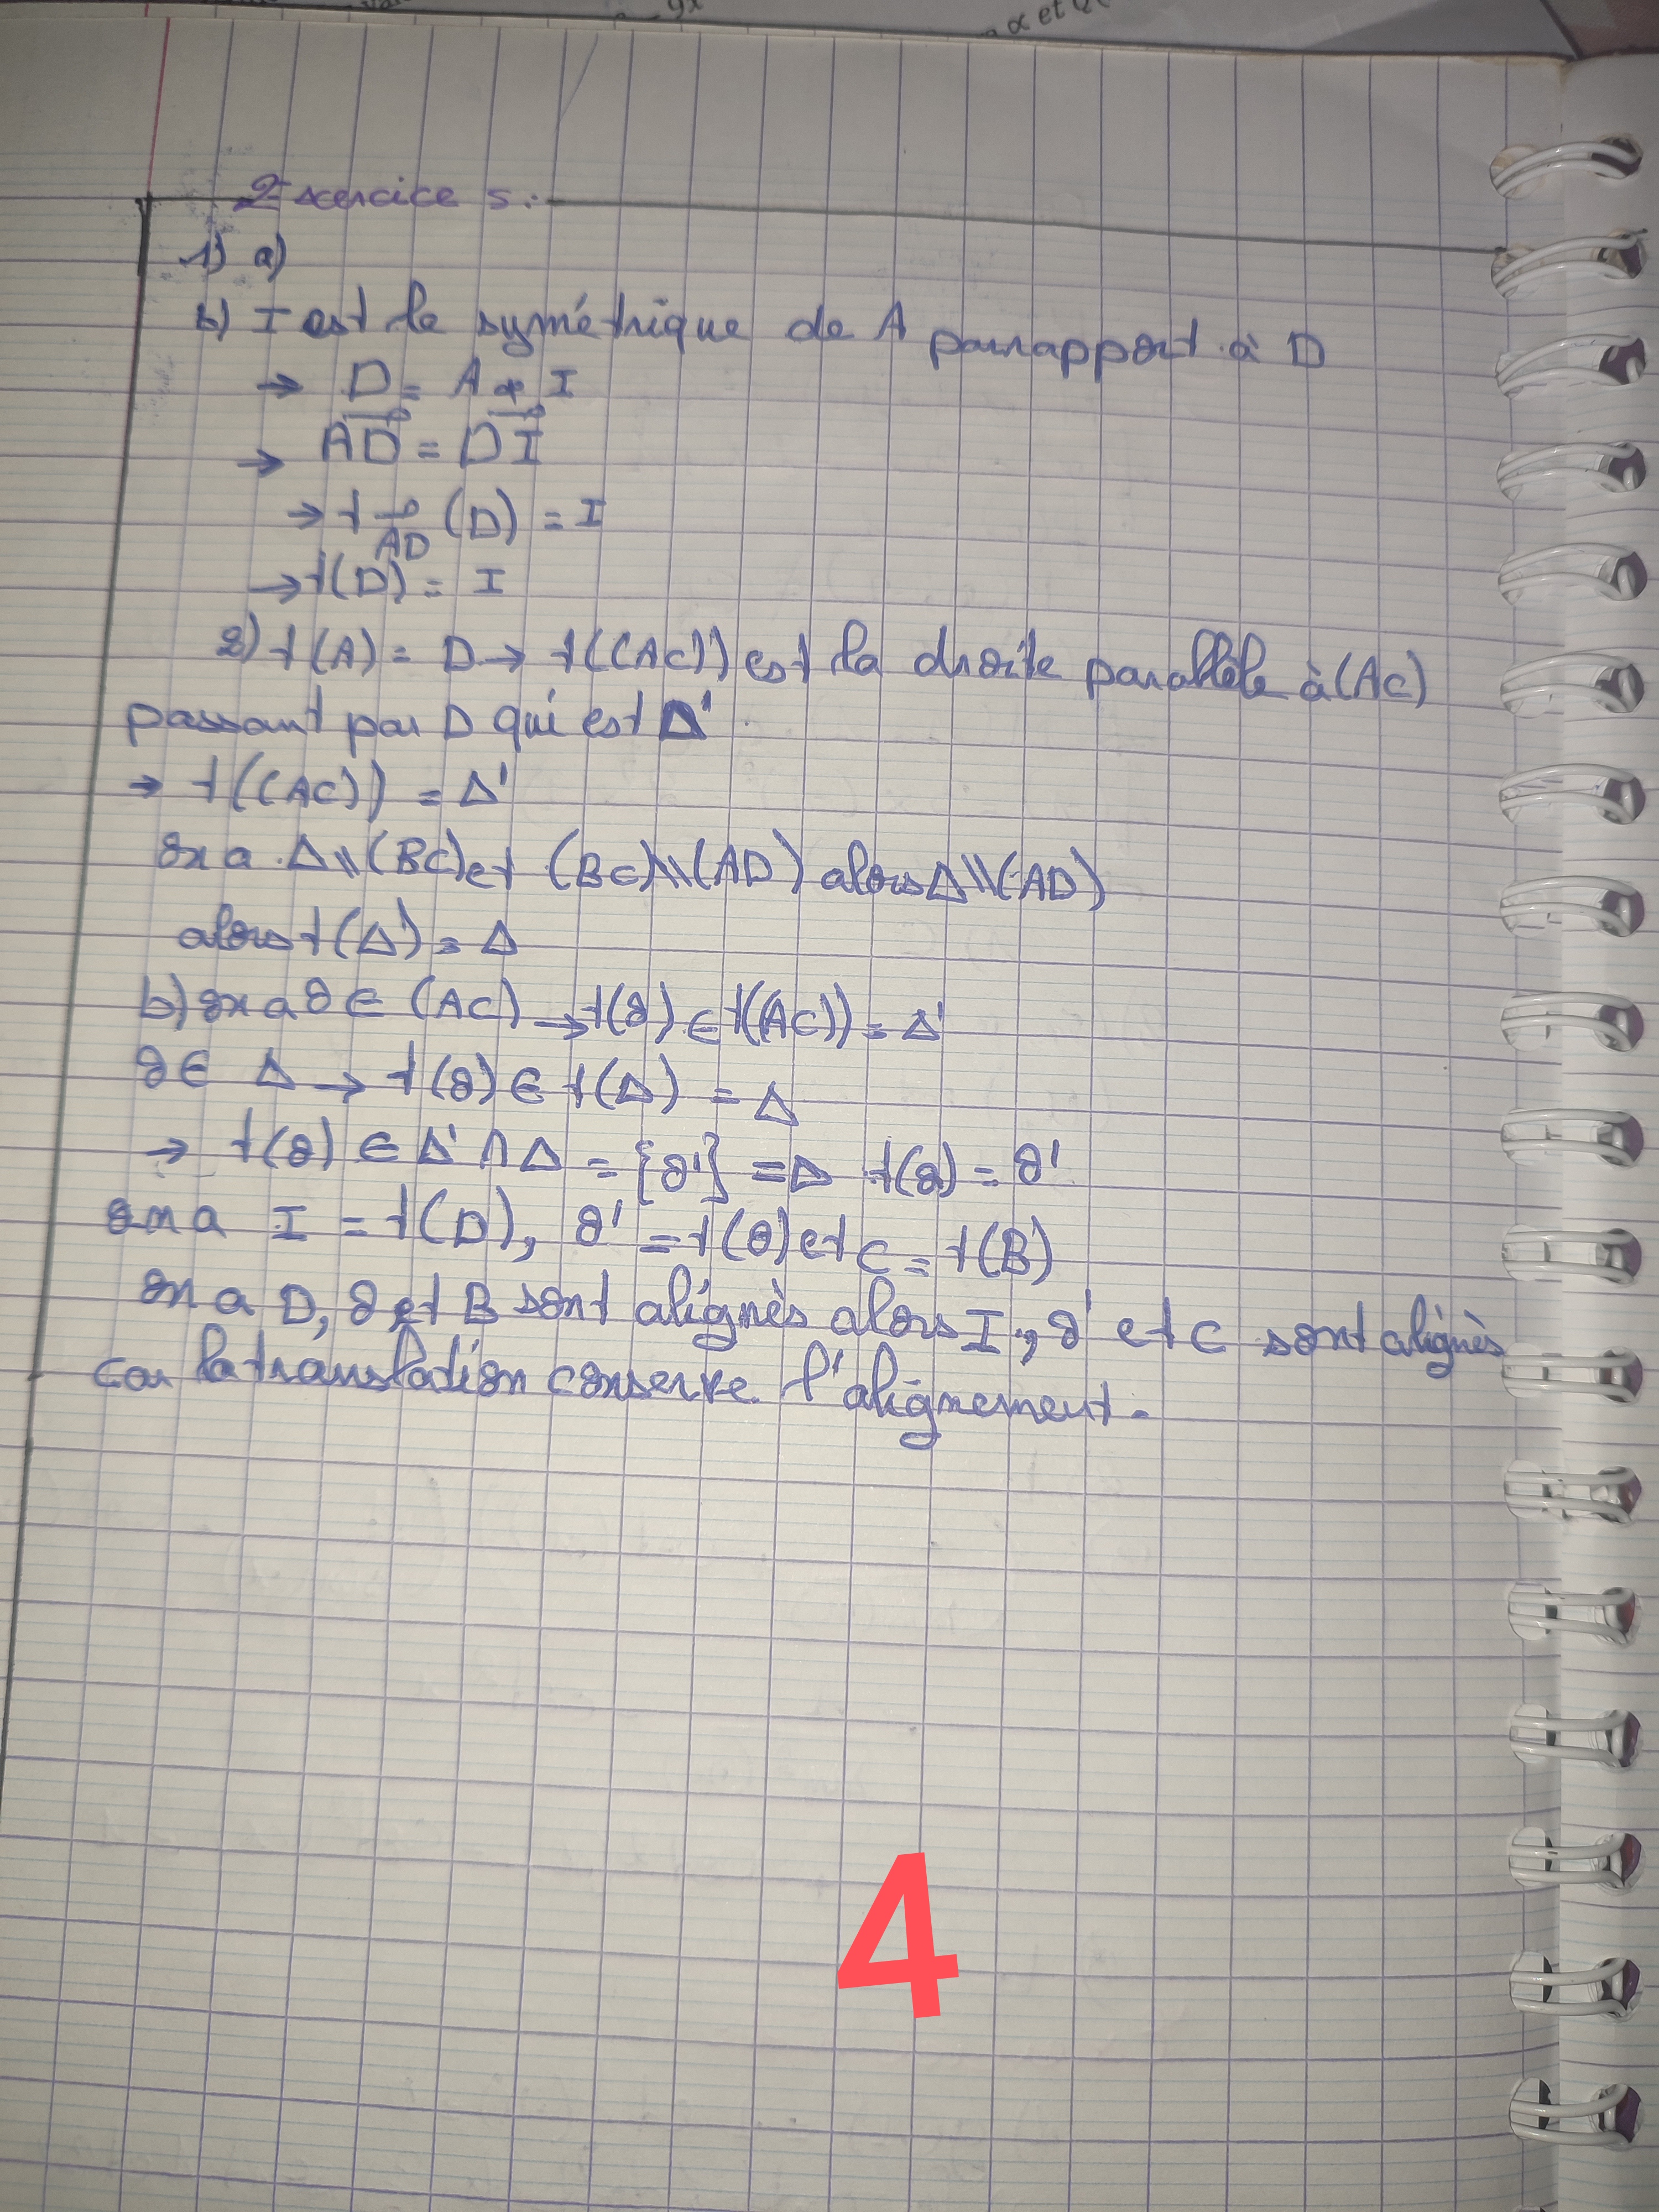 9x
α et
Exercice 5:
1) a)
b) I est le symétrique de A par rapport à D
→ D = A * I
→ AD = DI
→ t AD (D) = I
→ t(D) = I
2) t(A) = D → t((AC)) est la droite parallèle à (AC)
passant par D qui est Δ'.
→ t((AC)) = Δ'
on a Δ \\ (BC) et (BC) \\ (AD) alors Δ \\ (AD)
alors t(Δ) = Δ
b) on a O ∈ (AC) → t(O) ∈ t((AC)) = Δ'
O ∈ Δ → t(O) ∈ t(Δ) = Δ
→ t(O) ∈ Δ' ∩ Δ = {O'} => t(O) = O'
on a I = t(D), O' = t(O) et C = t(B)
on a D, O et B sont alignès alors I, O' et C sont alignès
car la translation conserve l'alignement.
4